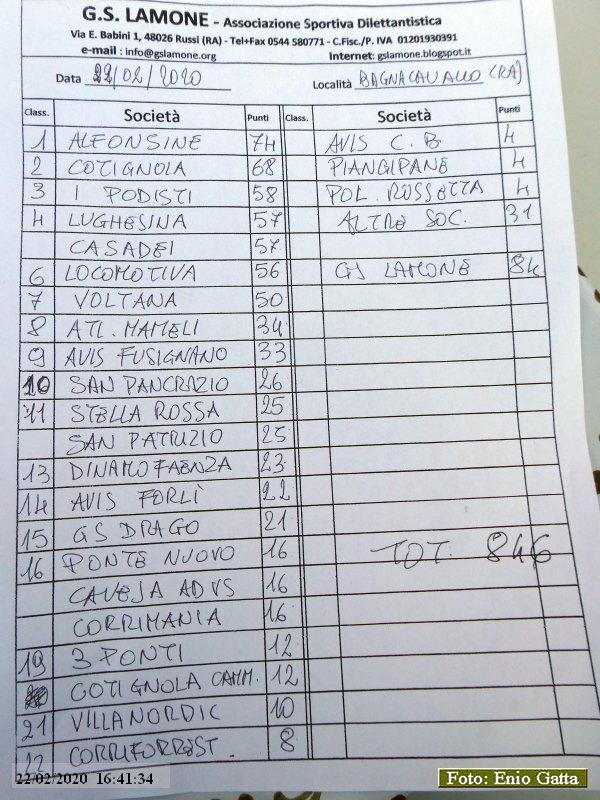 G.S. LAMONE - Associazione Sportiva Dilettantistica
Via E. Babini 1, 48026 Russi (RA) - Tel+Fax 0544 580771 - C.Fisc./P. IVA 01201930391
e-mail : info@gslamone.org Internet: gslamone.blogspot.it
Data 22/02/2020 Località BAGNACAVALLO (RA)
Class. Società Punti Class. Società Punti
1 ALFONSINE 74 AVIS C.B 4
2 COTIGNOLA 68 PIANGIPANE 4
3 I PODISTI 58 POL. ROSSETTA 4
4 LUGHESINA 57 ALTRE SOC. 31
CASADEI 57
6 LOCOMOTIVA 56 GS LAMONE 84
7 VOLTANA 50
8 ATL. MAMELI 34
9 AVIS FUSIGNANO 33
10 SAN PANCRAZIO 26
11 STELLA ROSSA 25
SAN PATRIZIO 25
13 DINAMO FAENZA 23
14 AVIS FORLÌ 22
15 GS DRAGO 21
16 PONTE NUOVO 16 TOT. 846
CAVEJA ADVS 16
CORRIMANIA 16
19 3 PONTI 12
COTIGNOLA CAMM. 12
21 VILLANORDIC 10
22 CORRIFORREST. 8
22/02/2020 16:41:34
Foto: Enio Gatta